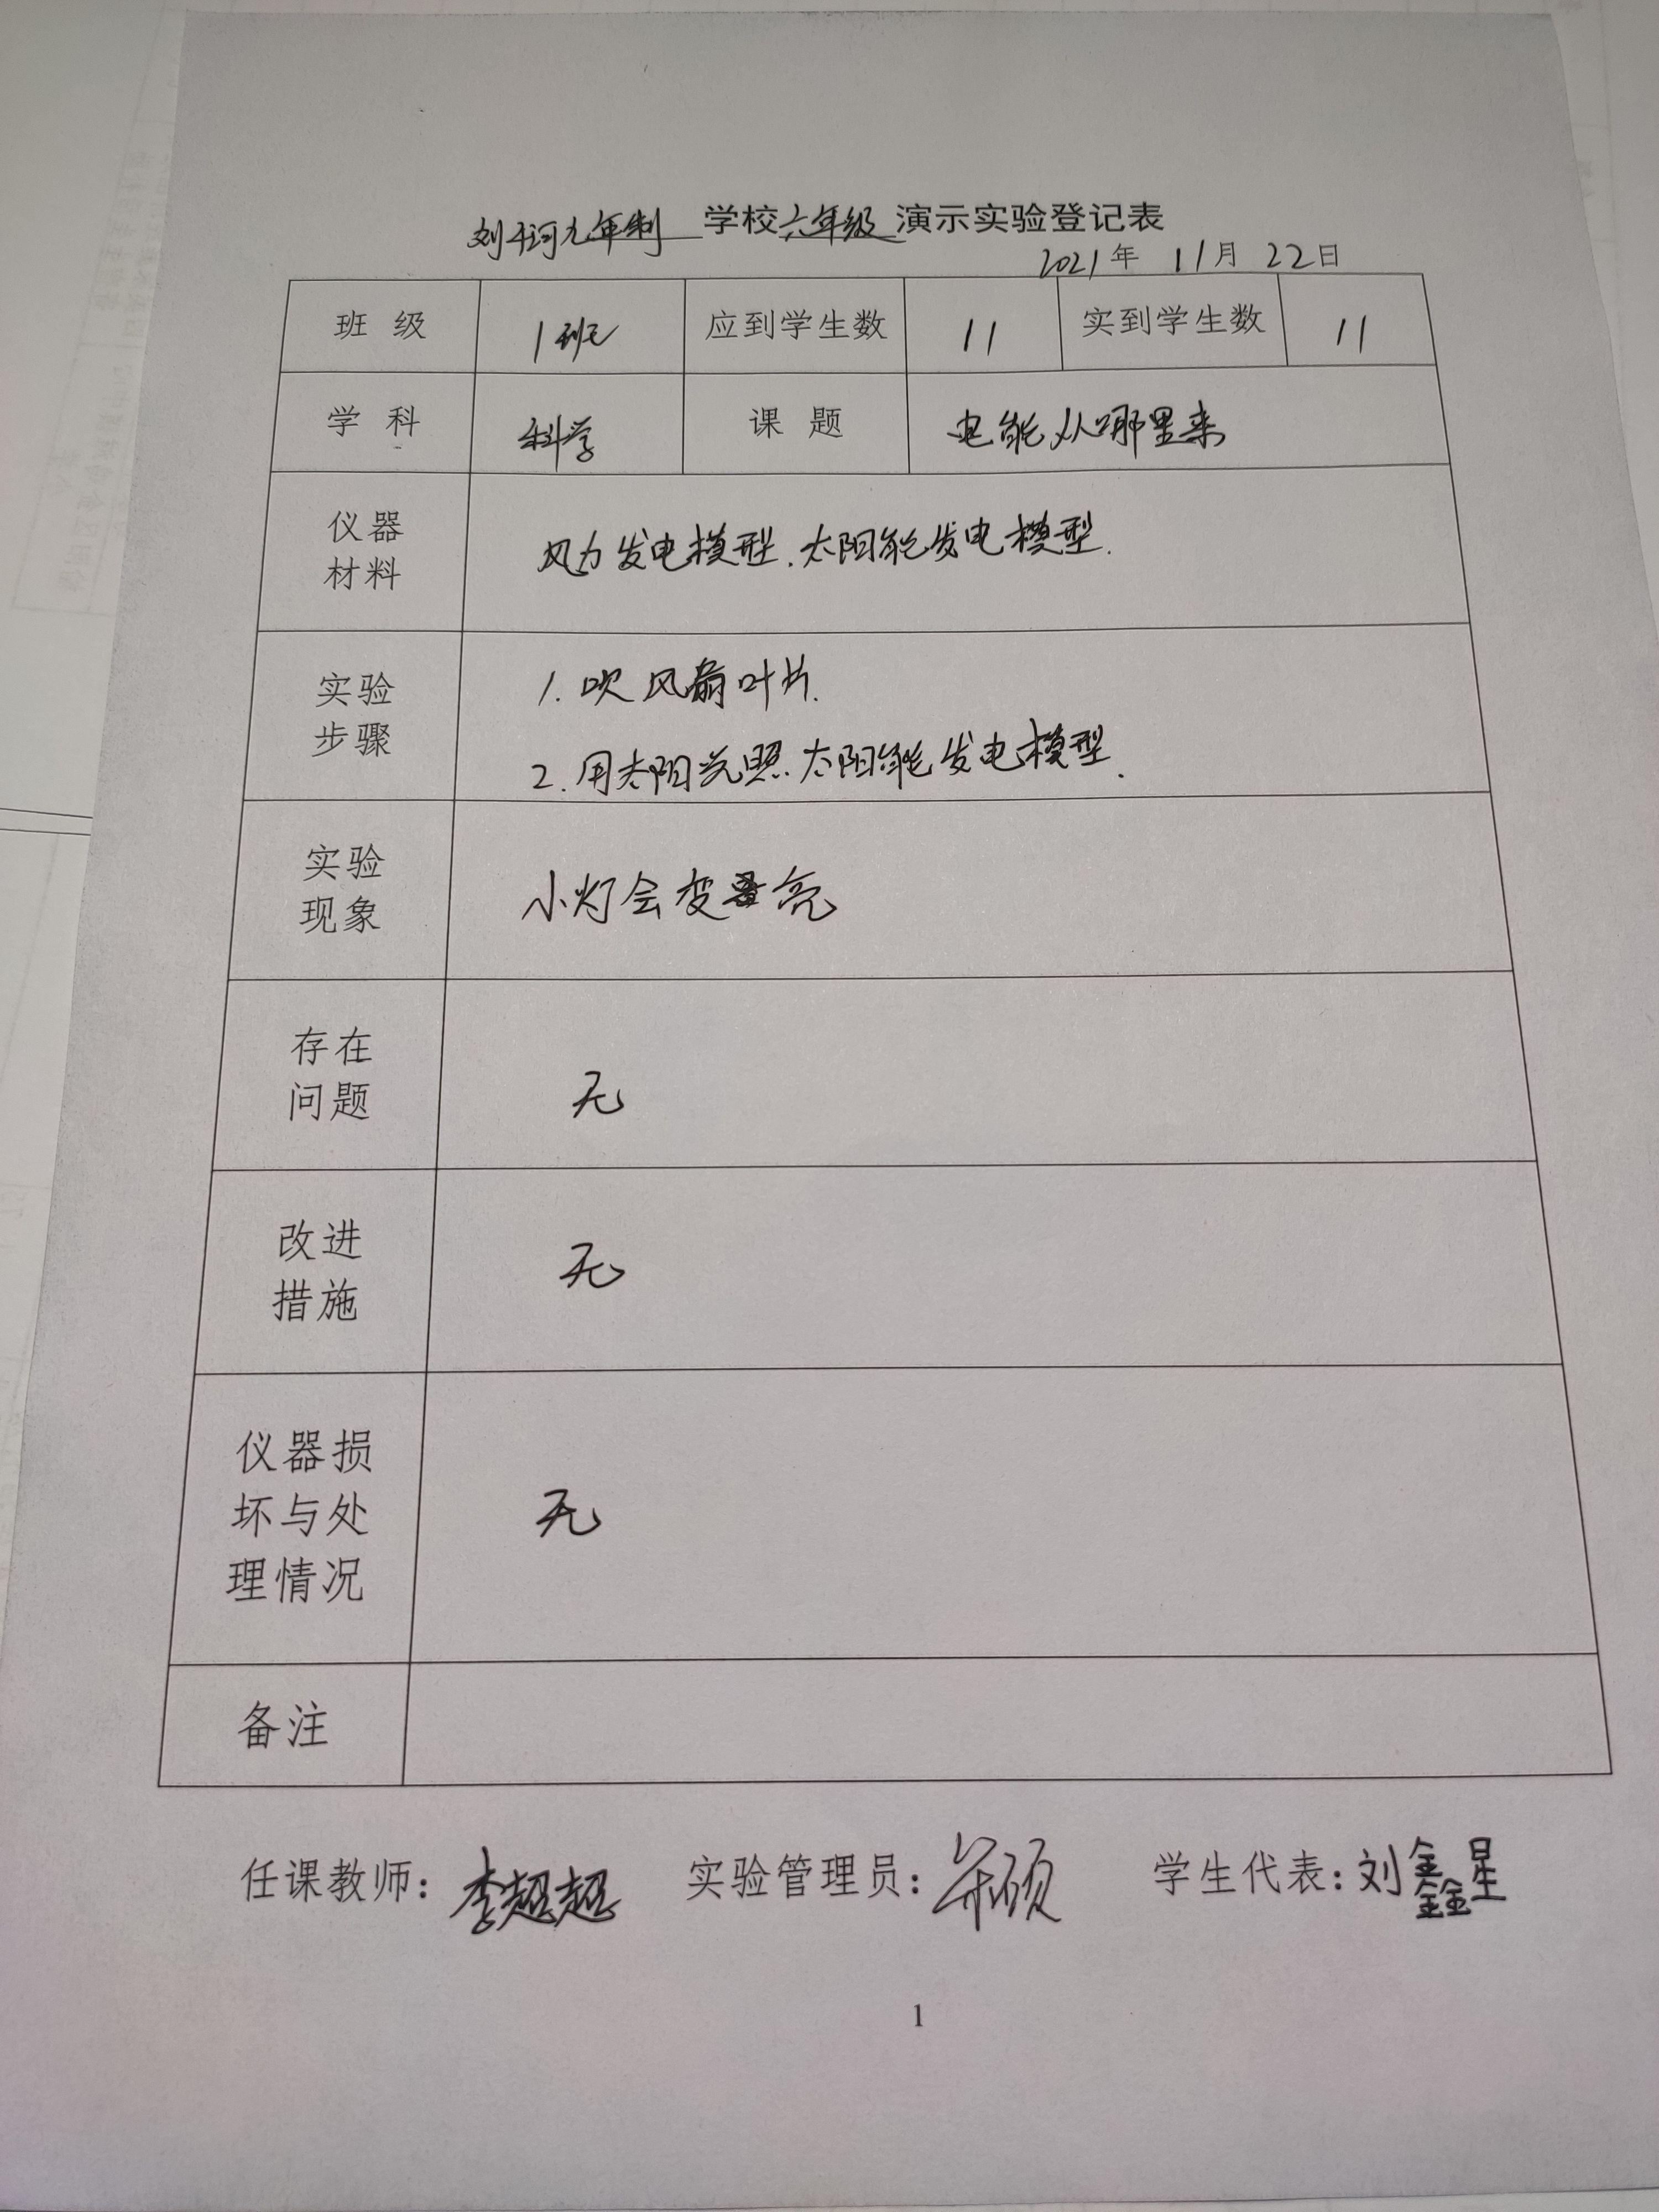 刘 河九年制 学校 六年级 演示实验登记表
2021年 11月 22日
班 级 1班 应到学生数 11 实到学生数 11
学 科 科学 课 题 电能从哪里来
仪器
材料
风力发电模型.太阳能发电模型.
实验
步骤
1. 吹风扇叶片.
2. 用太阳光照太阳能发电模型.
实验
现象
小灯会变亮
存在
问题
无
改进
措施
无
仪器损
坏与处
理情况
无
备注
任课教师: 李超超 实验管理员: 硕 学生代表: 刘鑫星
1